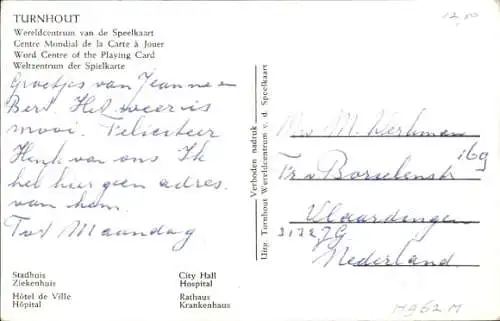 TURNHOUT
Wereldcentrum van de Speelkaart
Centre Mondial de la Carte à Jouer
Word Centre of the Playing Card
Weltzentrum der Spielkarte
Groetjes van Jeanne en
Bert. Het weer is
mooi. Feliciteer
Henk van ons Ik
heb hier geen adres
van hem.
Tot Maandag
Stadhuis
Ziekenhuis
Hôtel de Ville
Hôpital
City Hall
Hospital
Rathaus
Krankenhaus
Verboden nadruk
Uitg. Turnhout Wereldcentrum v. d. Speelkaart
12,50
M. Werkman
Tr v Borselenstr
169
Vlaardingen
Nederland
M962M